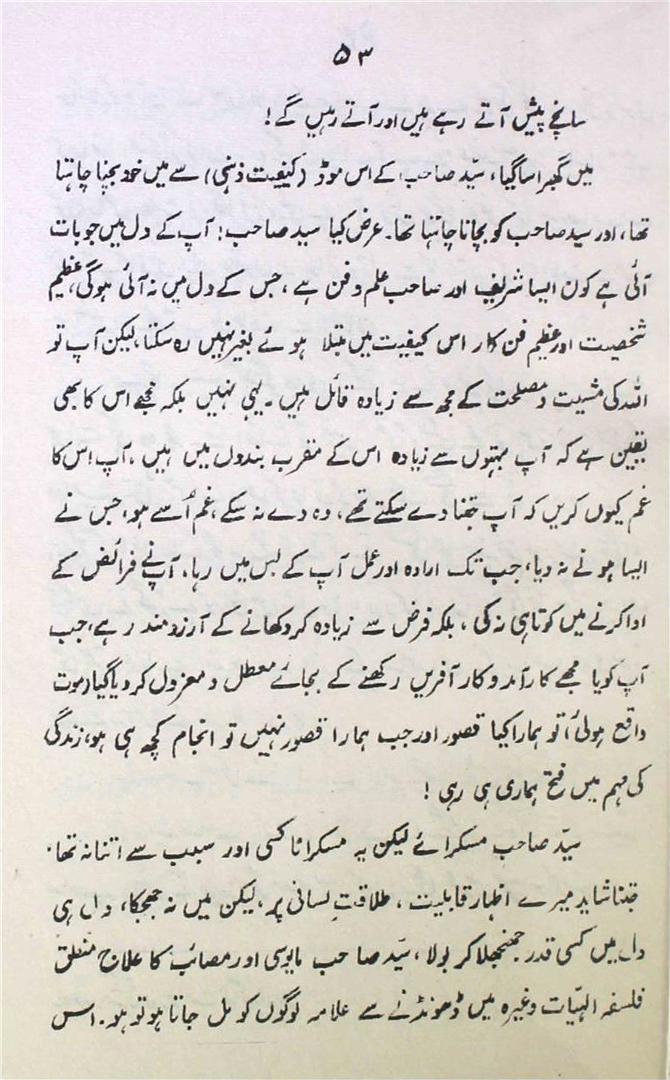 ۵۳
سانچے پیش آتے رہے ہیں اور آتے رہیں گے!
میں گھبرا سا گیا، سیّد صاحب کے اس موڈ (کیفیت ذہنی) سے میں خود بچنا چاہتا
تھا، اور سید صاحب کو بچانا چاہتا تھا۔ عرض کیا سید صاحب! آپ کے دل میں جو بات
آئی ہے کون ایسا شریف اور صاحب علم و فن ہے، جس کے دل میں نہ آئی ہوگی، عظیم
شخصیت اور عظیم فن کار اس کیفیت میں مبتلا ہوئے بغیر نہیں رہ سکتا، لیکن آپ تو
اللہ کی مشیت و مصلحت کے مجھ سے زیادہ قائل ہیں۔ یہی نہیں بلکہ مجھے اس کا بھی
یقین ہے کہ آپ بہتوں سے زیادہ اس کے مقرب بندوں میں ہیں، آپ اِس کا
غم کیوں کریں کہ آپ جتنا دے سکتے تھے، وہ دے نہ سکے، غم اُسے ہو، جس نے
ایسا ہونے نہ دیا، جب تک ارادہ اور عمل آپ کے بس میں رہا، آپ نے فرائض کے
ادا کرنے میں کوتاہی نہ کی، بلکہ فرض سے زیادہ کر دکھانے کے آرزو مند رہے، جب
آپ کو یا مجھے کارآمد و کار آفریں رکھنے کے بجائے معطل و معزول کر دیا گیا (موت
واقع ہوئی) تو ہمارا کیا قصور اور جب ہمارا قصور نہیں تو انجام کچھ ہی ہو، زندگی
کی مہم میں فتح ہماری ہی رہی!
سیّد صاحب مسکرائے لیکن یہ مسکرانا کسی اور سبب سے اتنا نہ تھا۔
جتنا شاید میرے اظہار قابلیت، طلاقتِ لسانی پر، لیکن میں نہ جھجکا، دل ہی
دل میں کسی قدر جھنجھلا کر بولا، سیّد صاحب مایوسی اور مصائب کا علاج منطق
فلسفہ الہیّات وغیرہ میں ڈھونڈنے سے علامہ لوگوں کو مل جاتا ہو تو ہو۔ اس